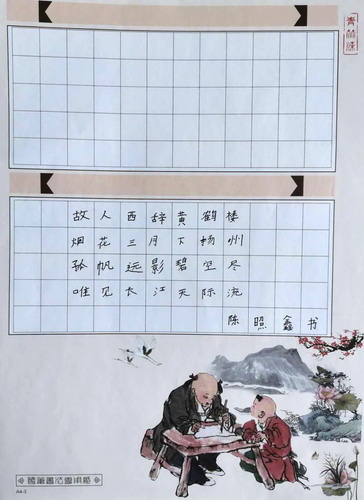 故人西辞黄鹤楼
烟花三月下扬州
孤帆远影碧空尽
唯见长江天际流
陈照鑫书
A4-3